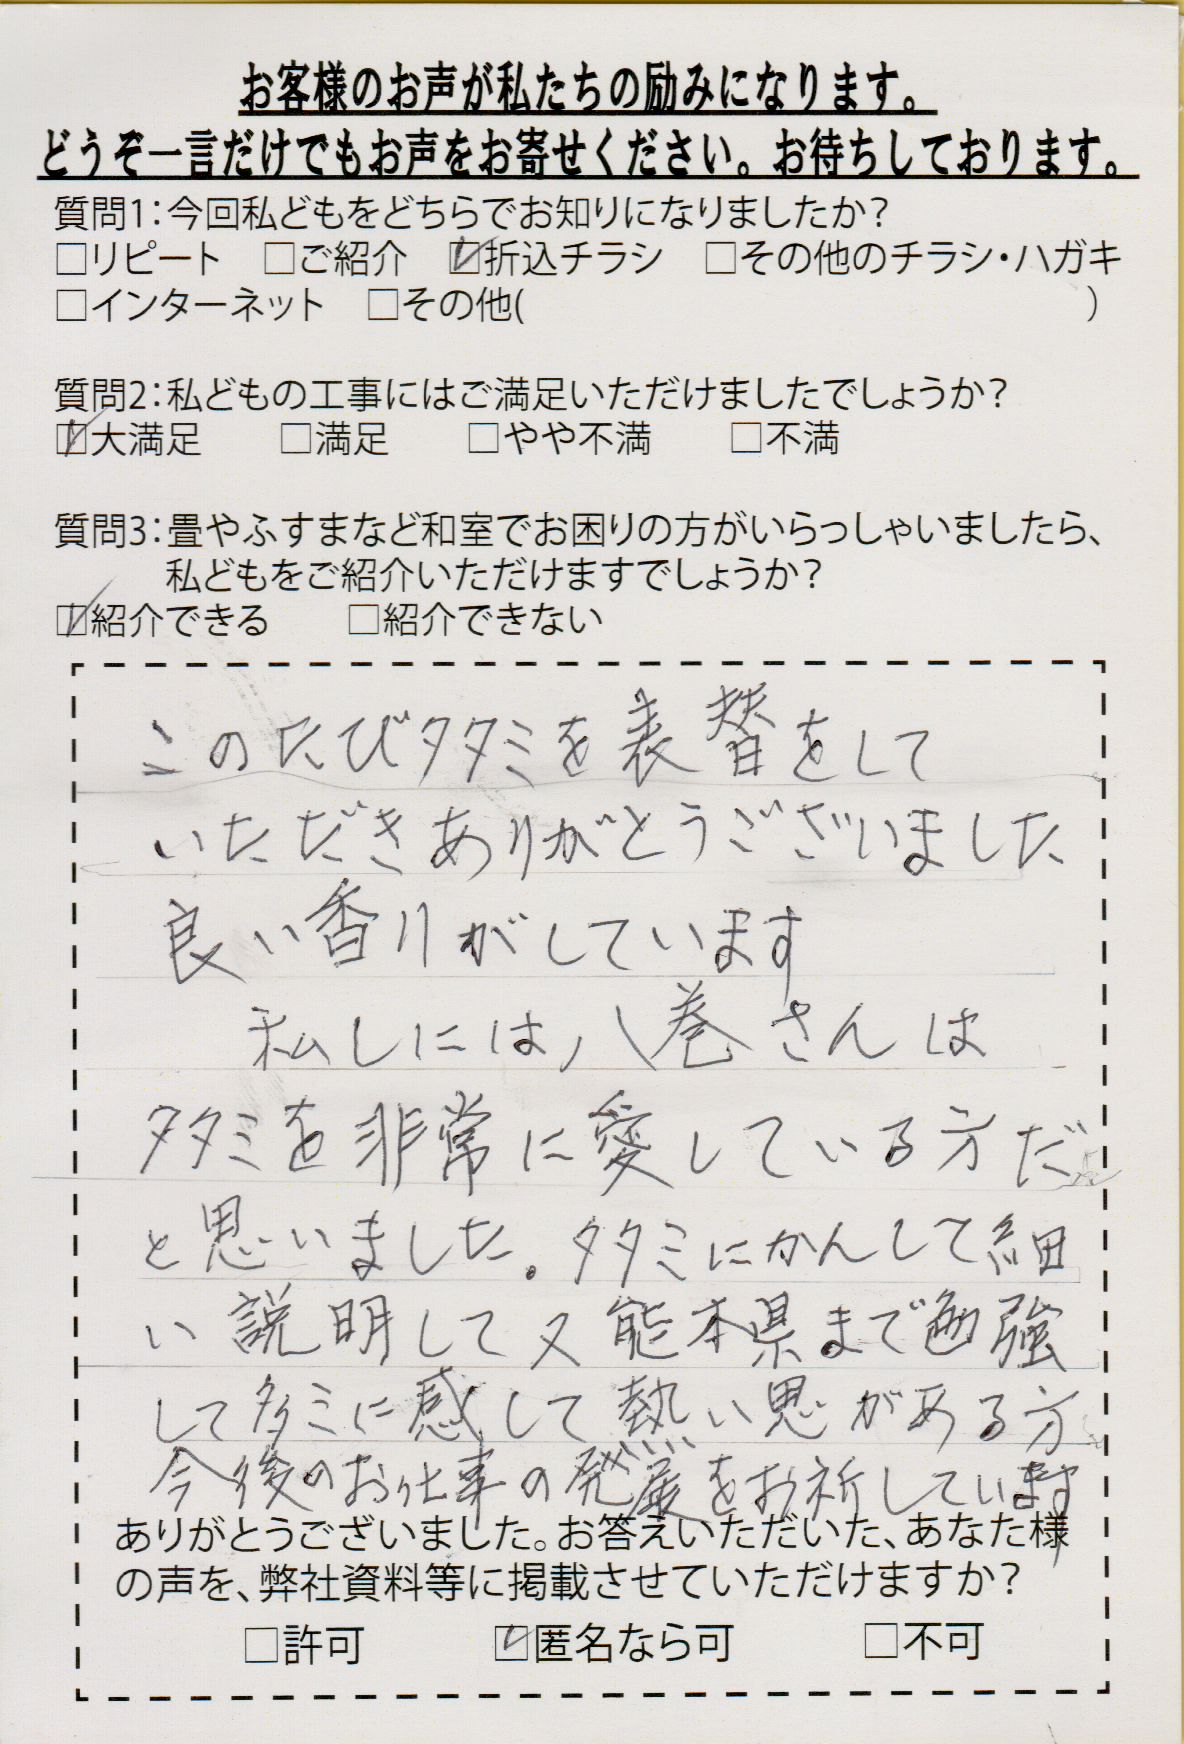 お客様のお声が私たちの励みになります。
どうぞ一言だけでもお声をお寄せください。お待ちしております。
質問1：今回私どもをどちらでお知りになりましたか？
□リピート　□ご紹介　☑折込チラシ　□その他のチラシ・ハガキ
□インターネット　□その他(　　　　　　　　　　)
質問2：私どもの工事にはご満足いただけましたでしょうか？
☑大満足　□満足　□やや不満　□不満
質問3：畳やふすまなど和室でお困りの方がいらっしゃいましたら、
私どもをご紹介いただけますでしょうか？
☑紹介できる　□紹介できない
このたびタタミを表替をして
いただきありがとうございました
良い香りがしています
私しには八巻さんは
タタミを非常に愛している方だ
と思いました。タタミにかんして細
い説明して又熊本県まで勉強
してタタミに感して熱い思がある方
今後のお仕事の発展をお祈しています
ありがとうございました。お答えいただいた、あなた様
の声を、弊社資料等に掲載させていただけますか？
□許可　☑匿名なら可　□不可